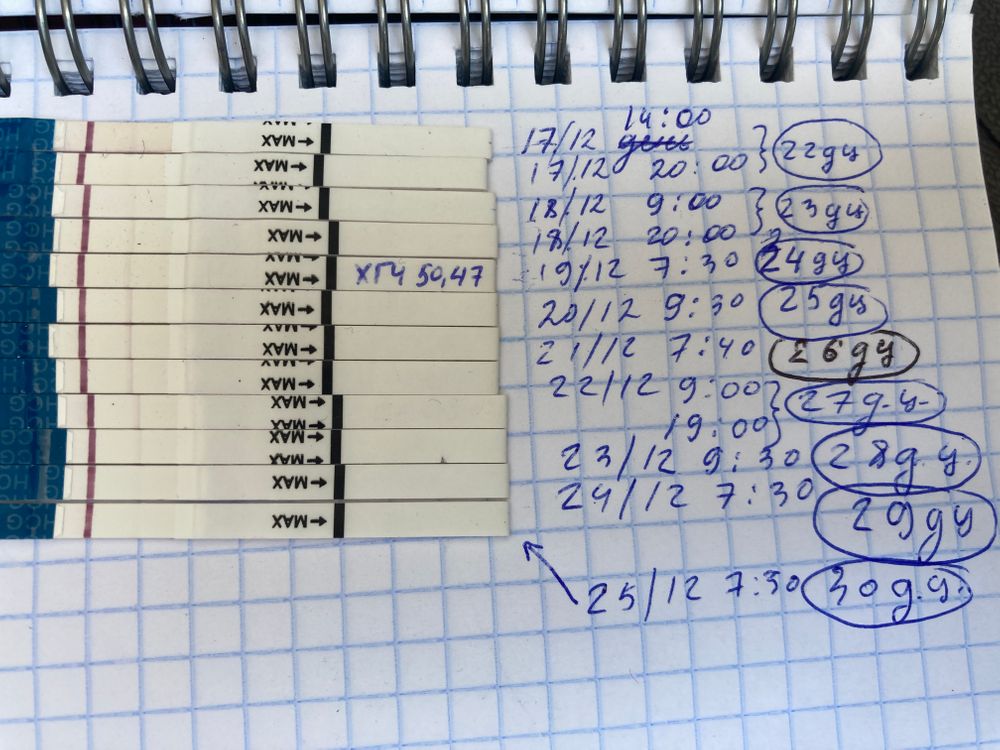 14:00
17/12 день
22дц
17/12 20:00
18/12 9:00
23дц
18/12 20:00
19/12 7:30 24дц
20/12 9:30 25дц
21/12 7:40 26дц
22/12 9:00
27д.ц.
19:00
23/12 9:30 28д.ц.
24/12 7:30
29дц
25/12 7:30 30д.ц.
←MAX
←MAX
←MAX
←MAX
←MAX ХГЧ 50,47
←MAX
←MAX
←MAX
←MAX
←MAX
←MAX
←MAX
HCG